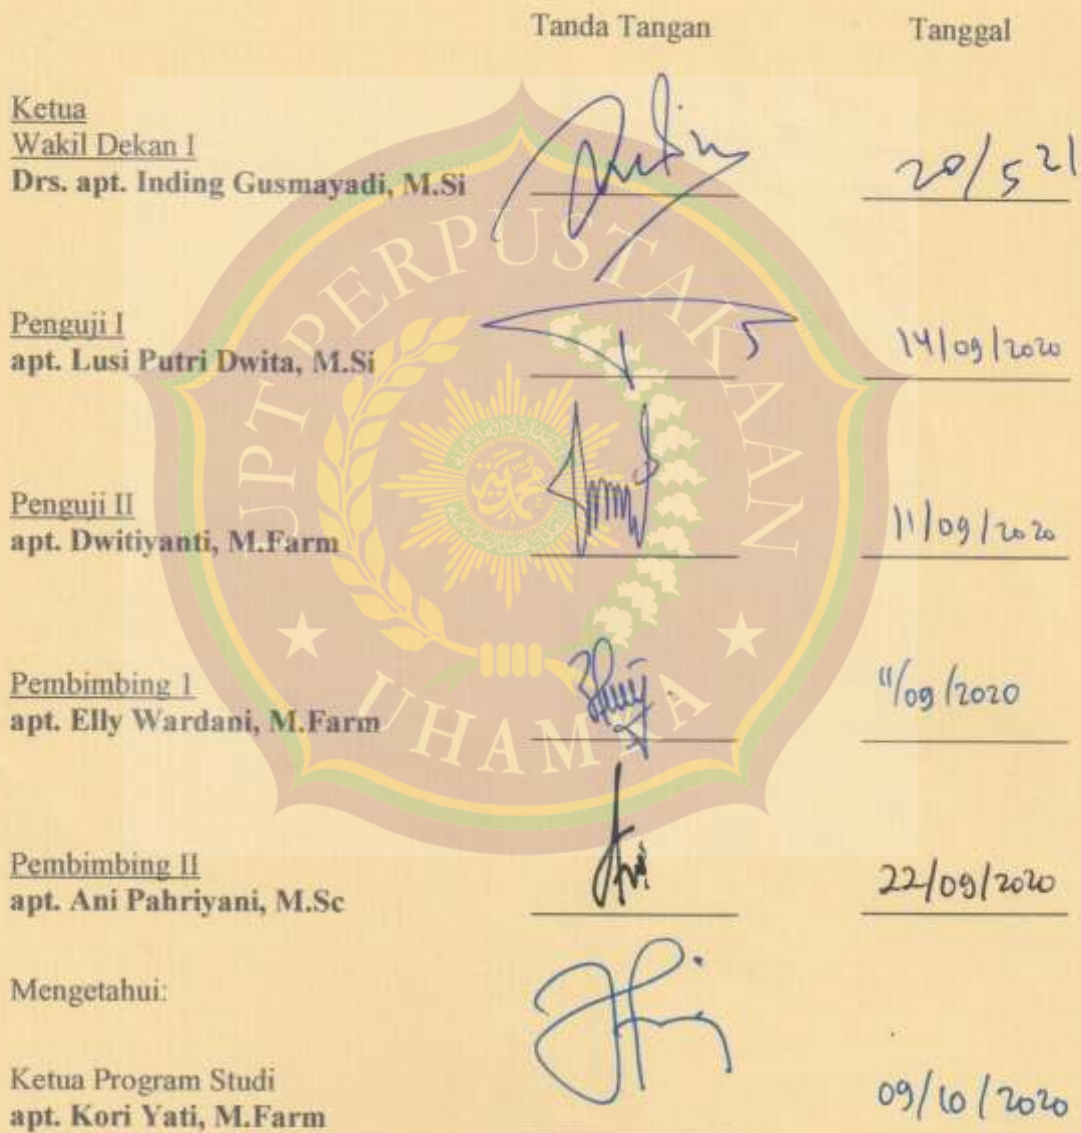 Tanda Tangan Tanggal
Ketua
Wakil Dekan I
Drs. apt. Inding Gusmayadi, M.Si 20/5 21
Penguji I
apt. Lusi Putri Dwita, M.Si 14/09/2020
Penguji II
apt. Dwitiyanti, M.Farm 11/09/2020
Pembimbing 1
apt. Elly Wardani, M.Farm 11/09/2020
Pembimbing II
apt. Ani Pahriyani, M.Sc 22/09/2020
Mengetahui:
Ketua Program Studi
apt. Kori Yati, M.Farm 09/10/2020
UPT PERPUSTAKAAN
UHAMKA